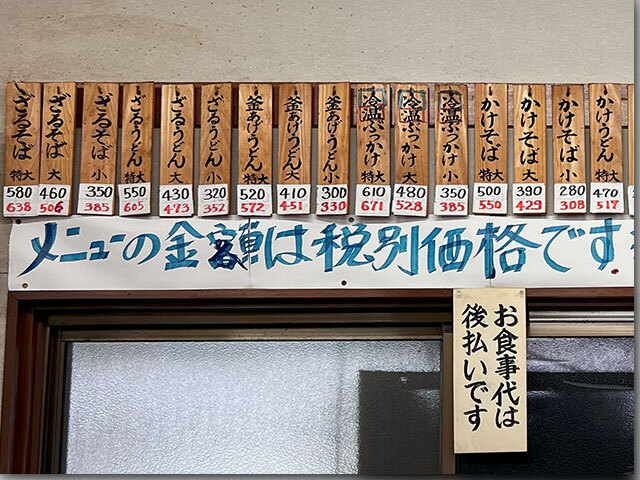 ざるそば 特大 580 638
ざるそば 大 460 506
ざるそば 小 350 385
ざるうどん 特大 550 605
ざるうどん 大 430 473
ざるうどん 小 320 352
釜あげうどん 特大 520 572
釜あげうどん 大 410 451
釜あげうどん 小 300 330
冷温ぶっかけ 特大 610 671
冷温ぶっかけ 大 480 528
冷温ぶっかけ 小 350 385
かけそば 特大 500 550
かけそば 大 390 429
かけそば 小 280 308
かけうどん 特大 470 517
メニューの金額は税別価格です
お食事代は
後払いです